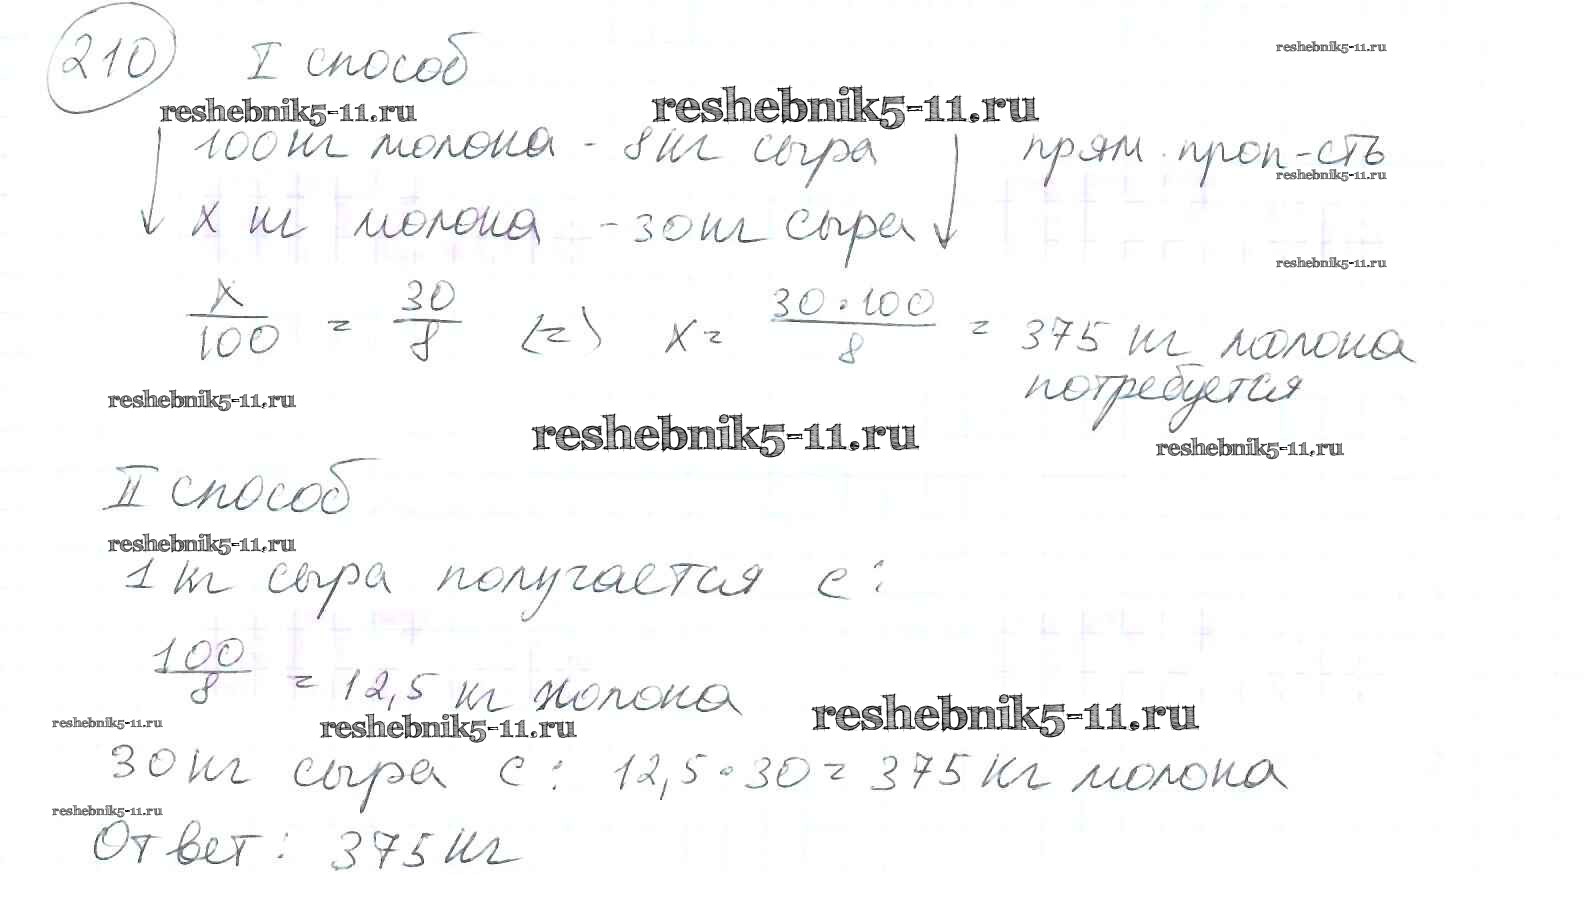 210 I способ
reshebnik5-11.ru
reshebnik5-11.ru reshebnik5-11.ru
100 кг молока - 8 кг сыра прям. проп-сть
reshebnik5-11.ru
x кг молока - 30 кг сыра
reshebnik5-11.ru
x/100 = 30/8 (=) x = 30·100/8 = 375 кг молока
потребуется
reshebnik5-11.ru
reshebnik5-11.ru
reshebnik5-11.ru
II способ
reshebnik5-11.ru
1 кг сыра получается с:
100/8 = 12,5 кг молока
reshebnik5-11.ru reshebnik5-11.ru reshebnik5-11.ru
30 кг сыра с: 12,5·30 = 375 кг молока
reshebnik5-11.ru
Ответ: 375 кг